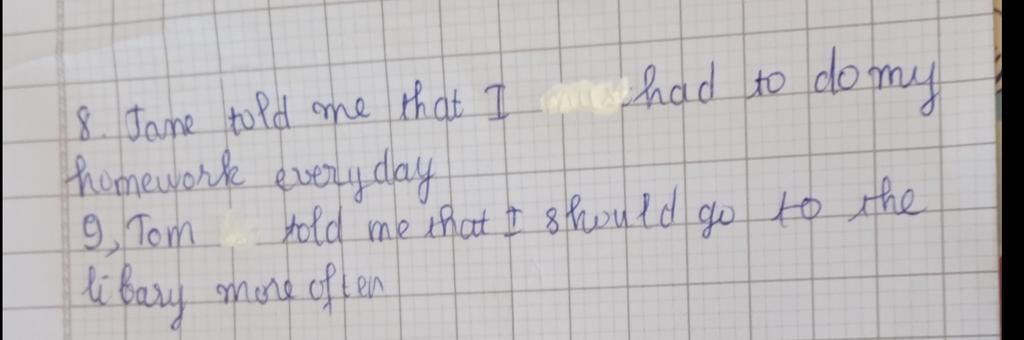 8. Jane told me that I had to do my
homework everyday
9, Tom told me that I should go to the
libary more often